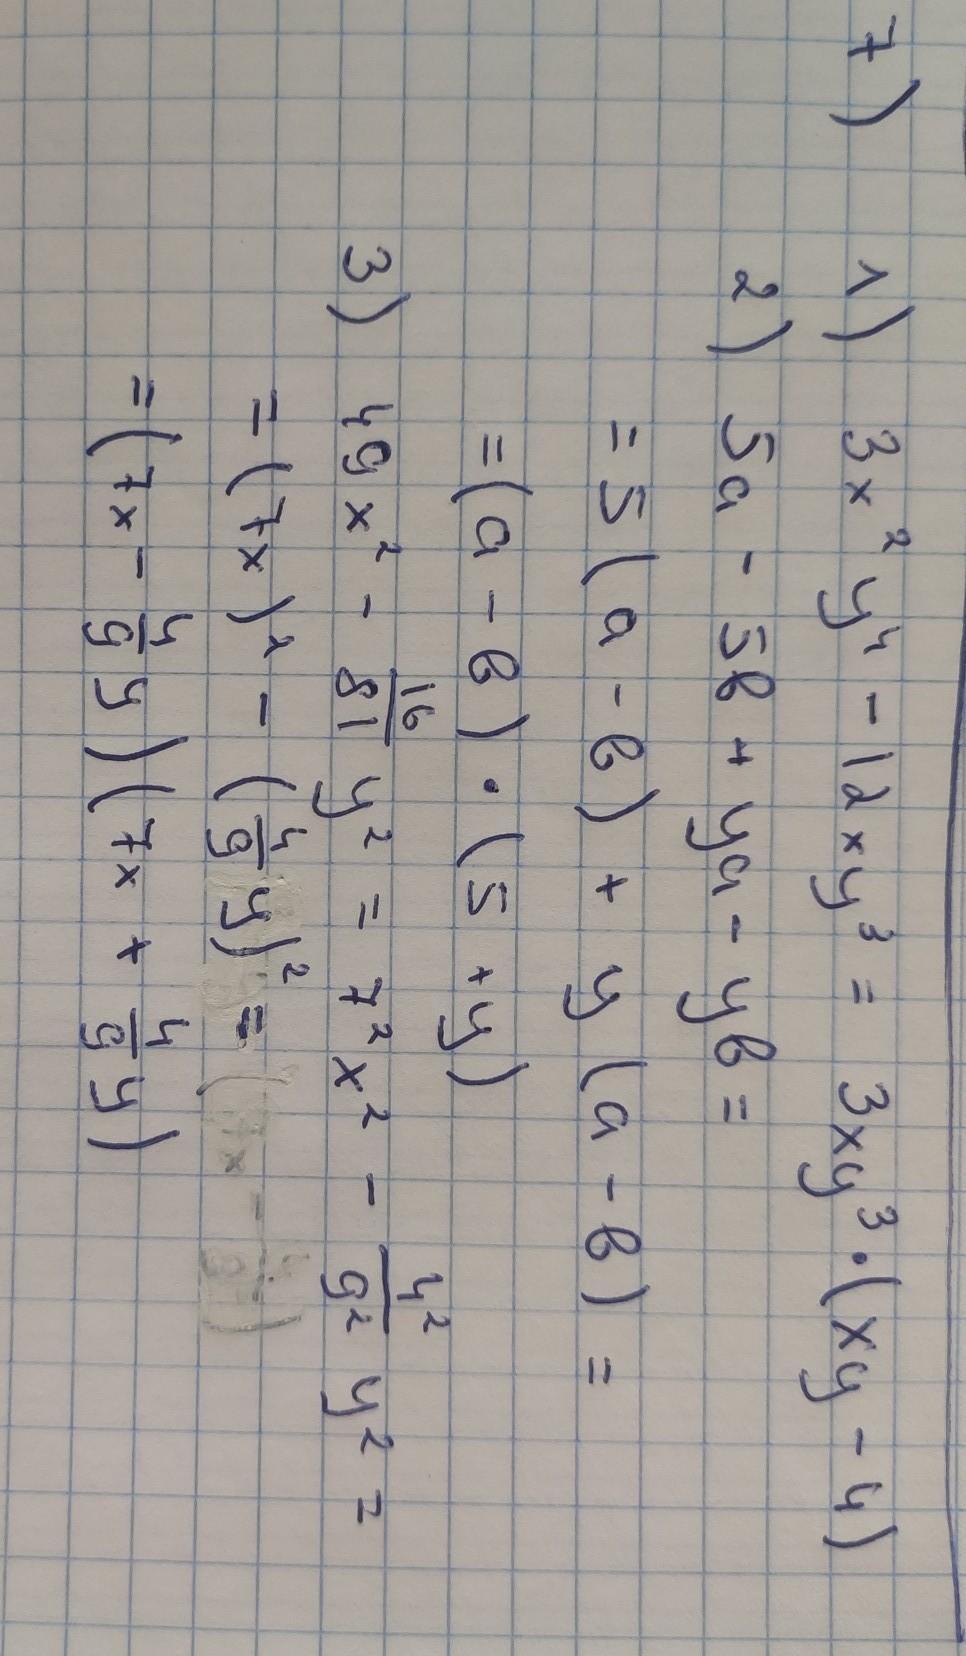 7) 1) 3x²y⁴ - 12xy³ = 3xy³·(xy - 4)
2) 5a - 5b + ya - yb =
= 5(a - b) + y(a - b) =
= (a - b)·(5 + y)
3) 49x² - 16/81 y² = 7²x² - 4²/9² y² =
= (7x)² - (4/9 y)² =
= (7x - 4/9 y)(7x + 4/9 y)